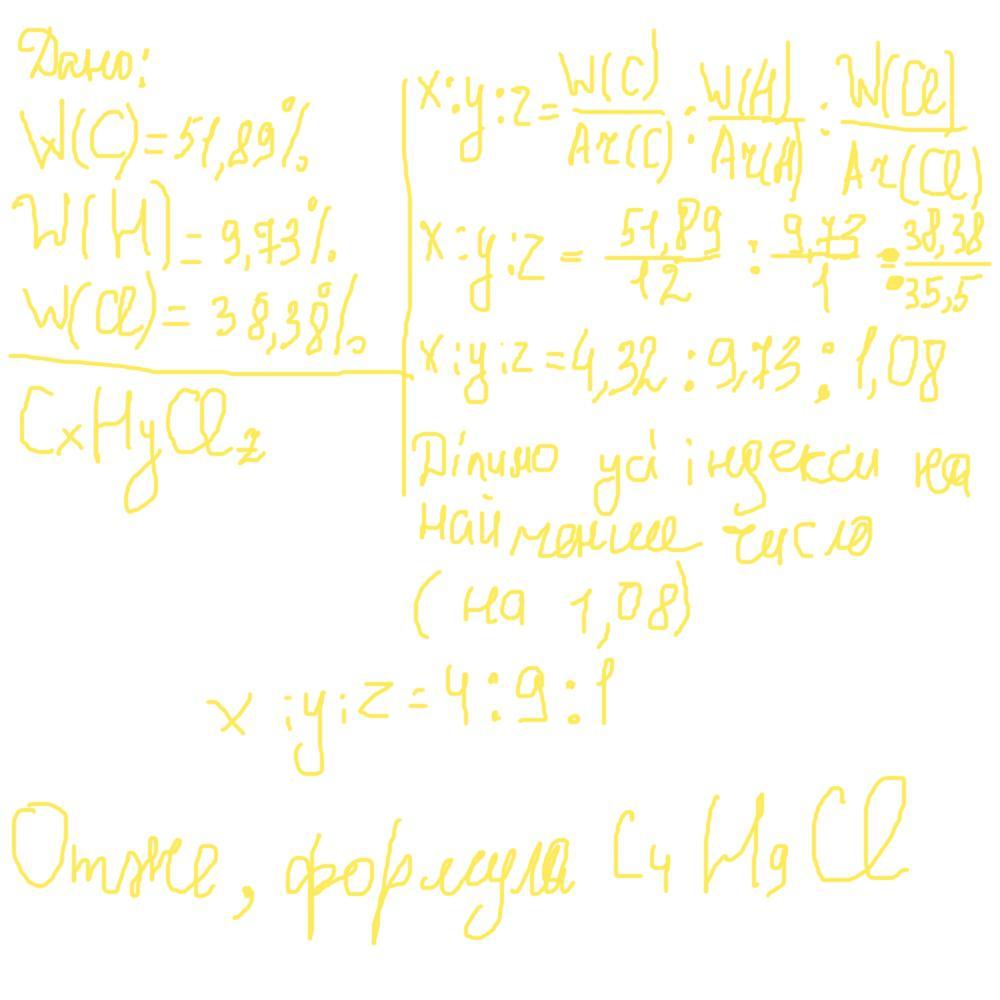 Дано:
W(C)=51,89%
W(H)=9,73%
W(Cl)=38,38%
CxHyClz
x:y:z=W(C)/Ar(C):W(H)/Ar(H):W(Cl)/Ar(Cl)
x:y:z=51,89/12:9,73/1:38,38/35,5
x:y:z=4,32:9,73:1,08
Ділимо усі індекси на
найменше число
(на 1,08)
x:y:z=4:9:1
Отже, формула C4H9Cl